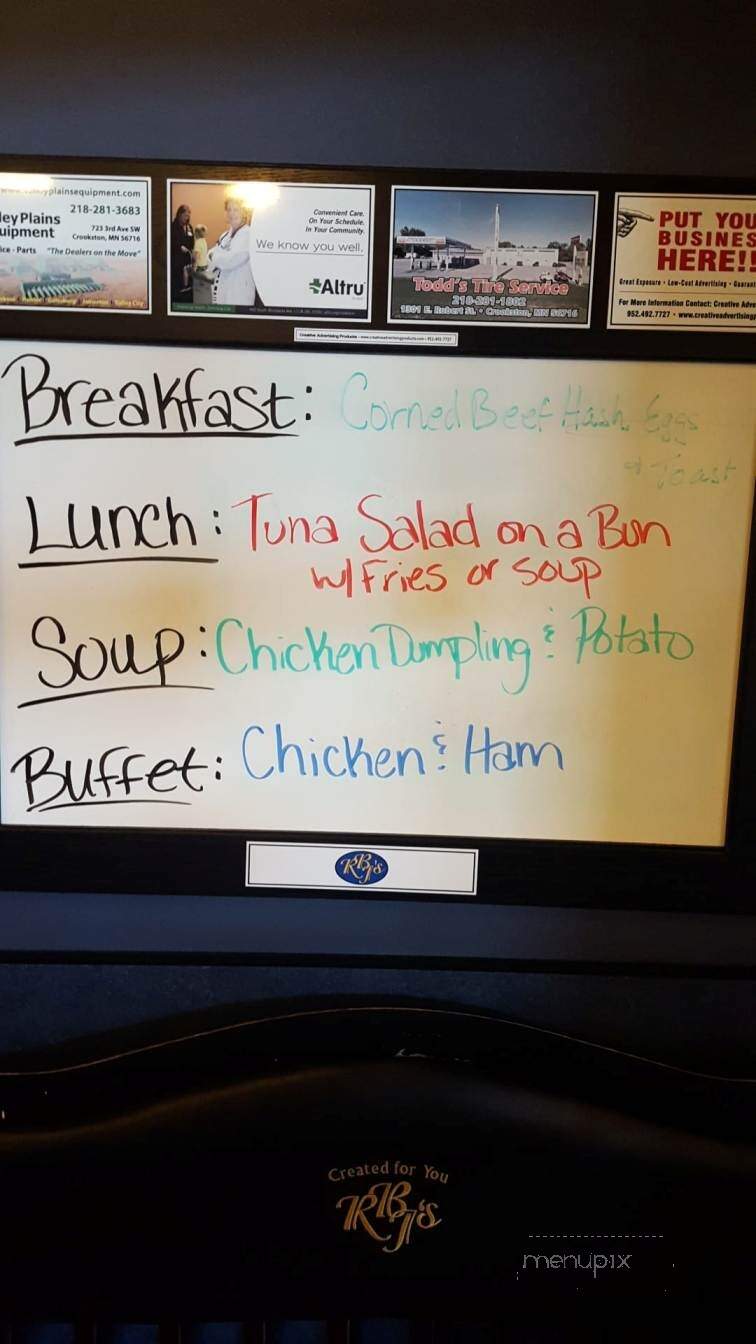 plainsequipment.com
218-281-3683
ley Plains
uipment
723 3rd Ave SW
Crookston, MN 56716
ice - Parts "The Dealers on the Move"
Convenient Care.
On Your Schedule.
In Your Community.
We know you well.
Altru
Todd's Tire Service
218-281-1002
1301 E. Robert St. • Crookston, MN 56716
PUT YOU
BUSINES
HERE!!
Great Exposure • Low-Cost Advertising • Guarant
For More Information Contact: Creative Adve
952.492.7727 • www.creativeadvertising
Creative Advertising Products - www.creativeadvertisingproducts.com - 952.492.7727
Breakfast: Corned Beef Hash Eggs
& Toast
Lunch: Tuna Salad on a Bun
w/ Fries or Soup
Soup: Chicken Dumpling & Potato
Buffet: Chicken & Ham
RBJ's
Created for You
RBJ's
menupix